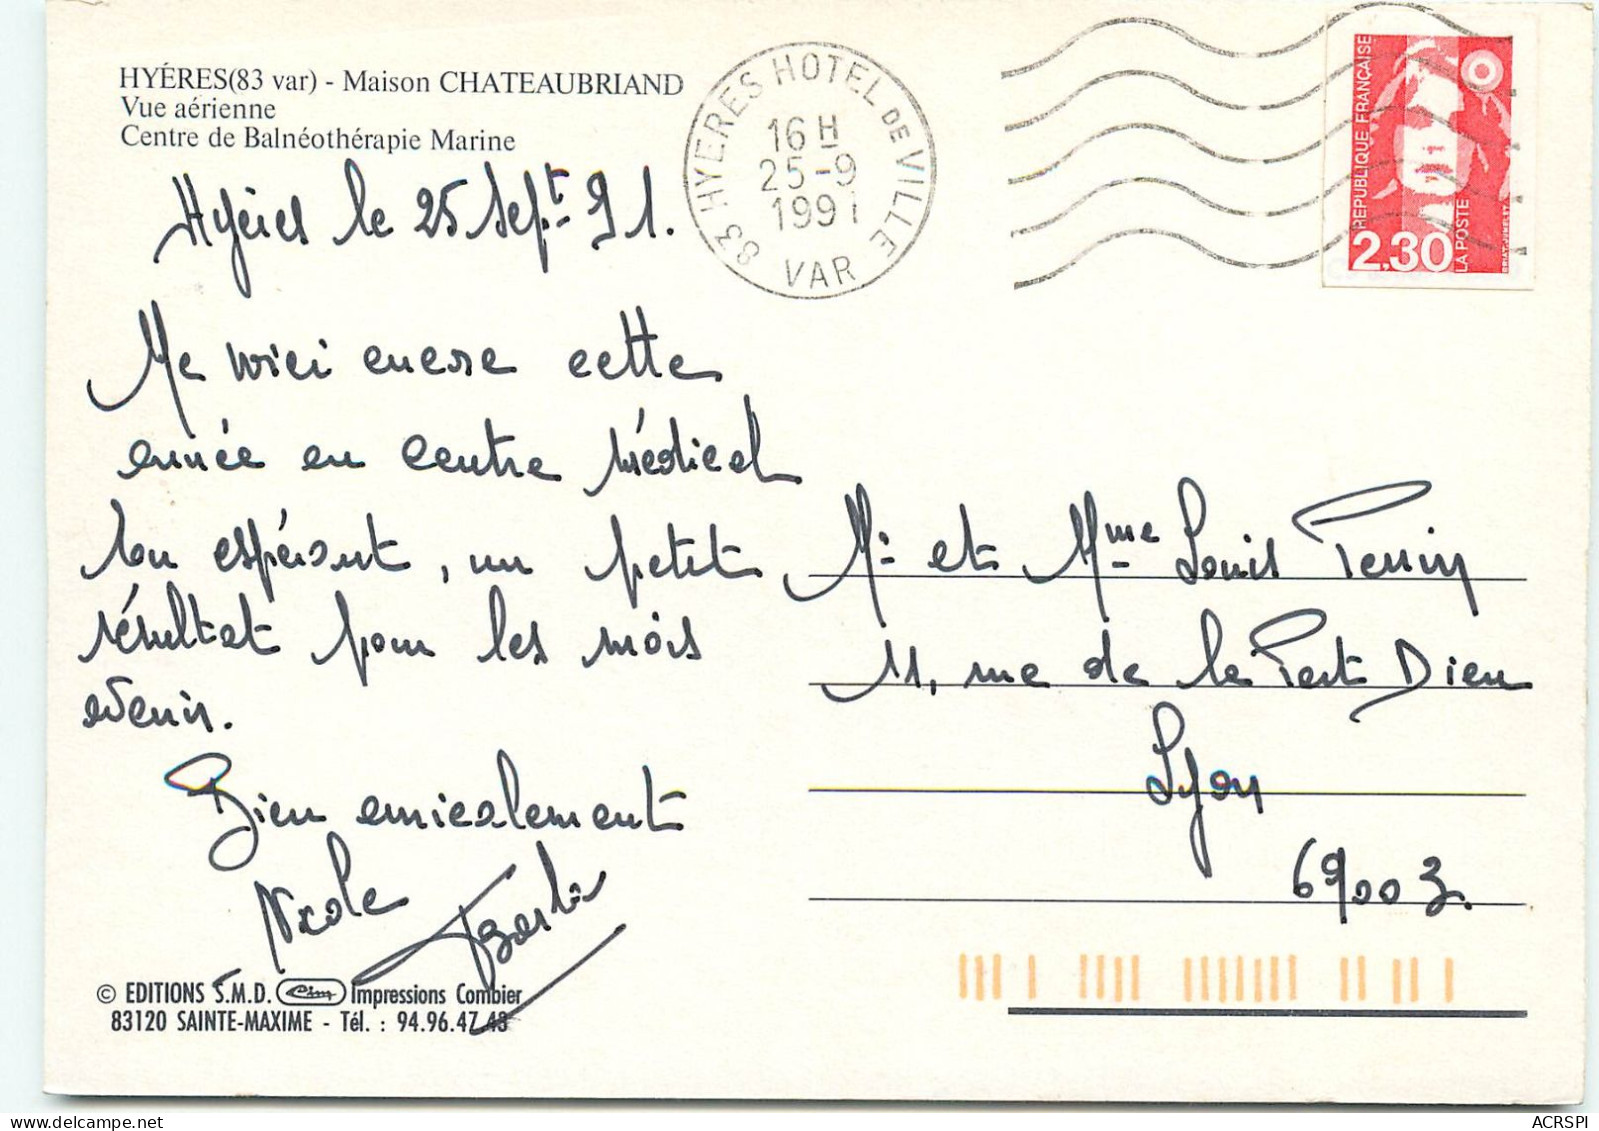 HYÉRES(83 var) - Maison CHATEAUBRIAND
Vue aérienne
Centre de Balnéothérapie Marine
83 HYERES HOTEL DE VILLE
16 H
25-9
1991
VAR
RÉPUBLIQUE FRANÇAISE
LA POSTE
2,30
Hyères le 25 Sept. 91.
Me voici encore cette
année en centre médical
en espérant, un petit
résultat pour les mois
à venir.
Bien amicalement
Nicole
Mr et Mme Louis Perrin
11, rue de la Part Dieu
Lyon
69003.
© EDITIONS S.M.D. Cim Impressions Combier
83120 SAINTE-MAXIME - Tél. : 94.96.47.43
ACRSPI